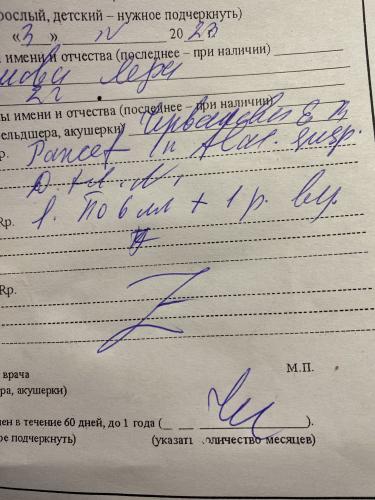 рослый, детский – нужное подчеркнуть)
« 3 » IV 20 23
имени и отчества (последнее – при наличии)
Лера
2 г
ы имени и отчества (последнее – при наличии)
ельдшера, акушерки)
p.
Pancef In flac. susp.
D. t.d. N. 1
Rp.
S. По 6 мл × 1 р.
Rp.
Z
врача
М.П.
ра, акушерки)
ен в течение 60 дней, до 1 года (
).
ое подчеркнуть)
(указать количество месяцев)